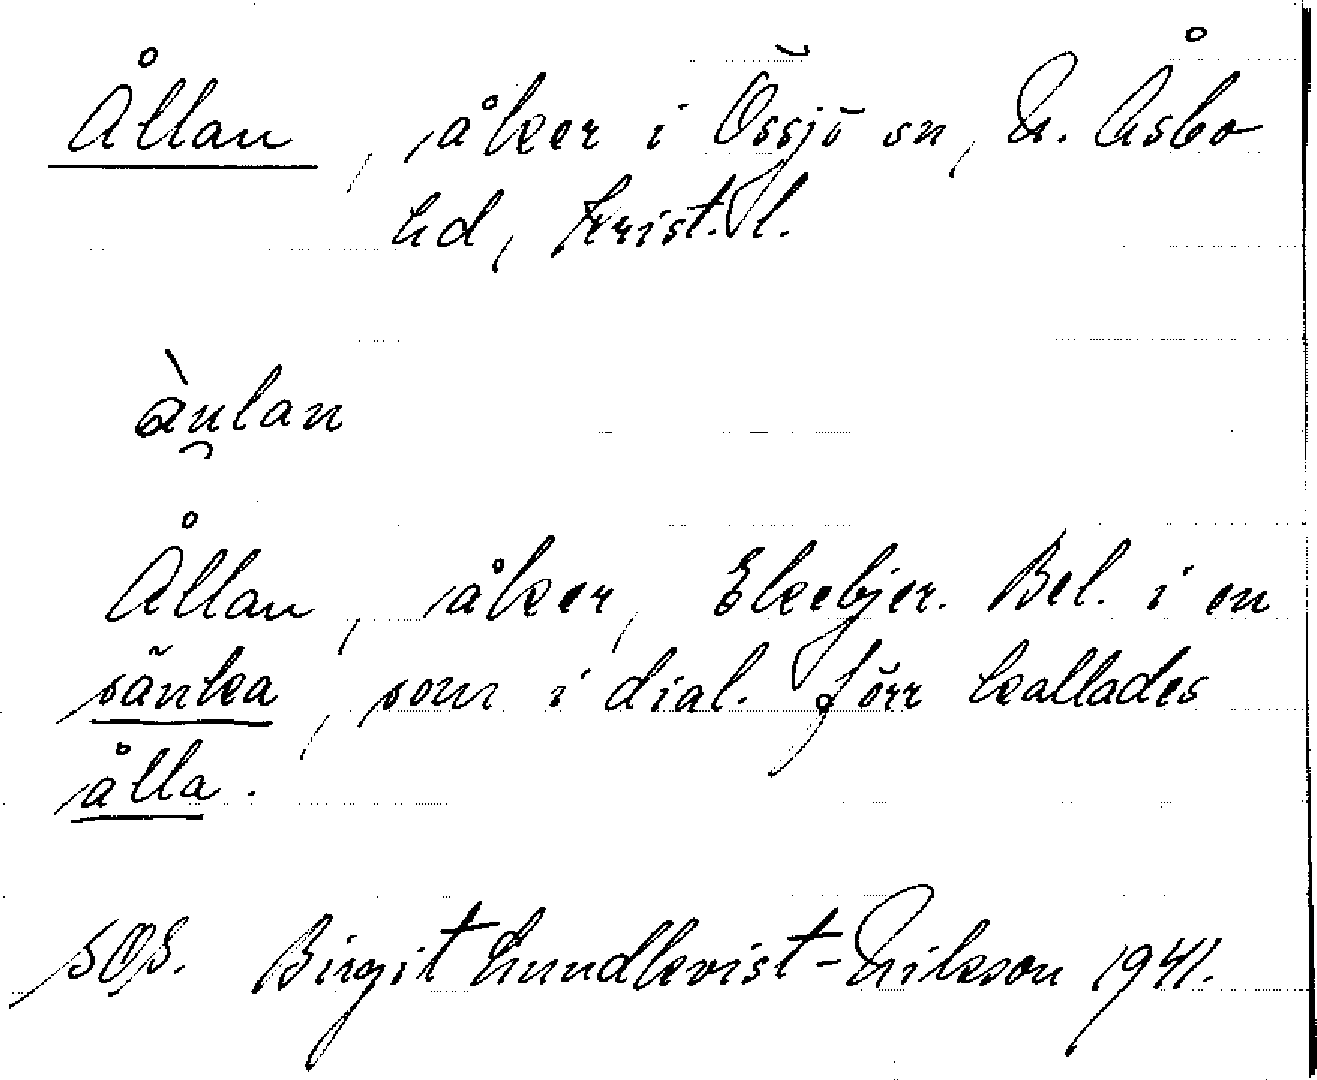 Ållan, åker i Össjö sn, N. Åsbo
hd, Krist. l.
àu̯lan
Ållan, åker, Ekebjer. Bel. i en
sänka, som i dial. förr kallades
ålla.
SOS. Birgit Lundkvist-Nilsson 1941.